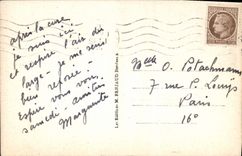 après la cure
je suis ici
et respire l'air du
large - je me sens
bien reposée -
espère vous voir
samedi. amitiés
Marguerite
Les Editions M. PERNAUD
Melle O.
7 rue P. Louys
Paris
16e